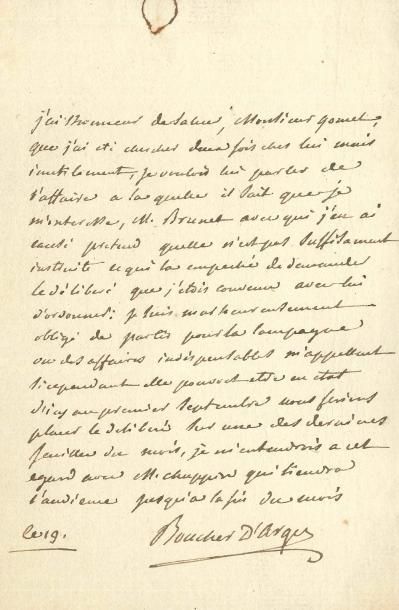 j'ai l'honneur de saluer, Monsieur gomel,
que j'ai été chercher deux fois chez lui mais
inutilement, je voulois lui parler de
l'affaire a laquelle il sait que je
m'interesse, M. Brunet avec qui j'en ai
causé pretend quelle n'est pas suffisament
instruite ce qui l'a empeché de demander
le déliberé que j'étois convenu avec lui
d'ordonner: je suis malheureusement
obligé de partir pour la campagne
ou des affaires indispensables m'appellent
si cependant elle pouvoit etre en etat
d'icy au premier septembre nous ferions
placer le deliberé sur une des dernieres
feuilles du mois, je m'entendrois a cet
egard avec M. chuppin qui tiendra
l'audience jusqu'a la fin du mois
ce 19. Boucher D'Argis